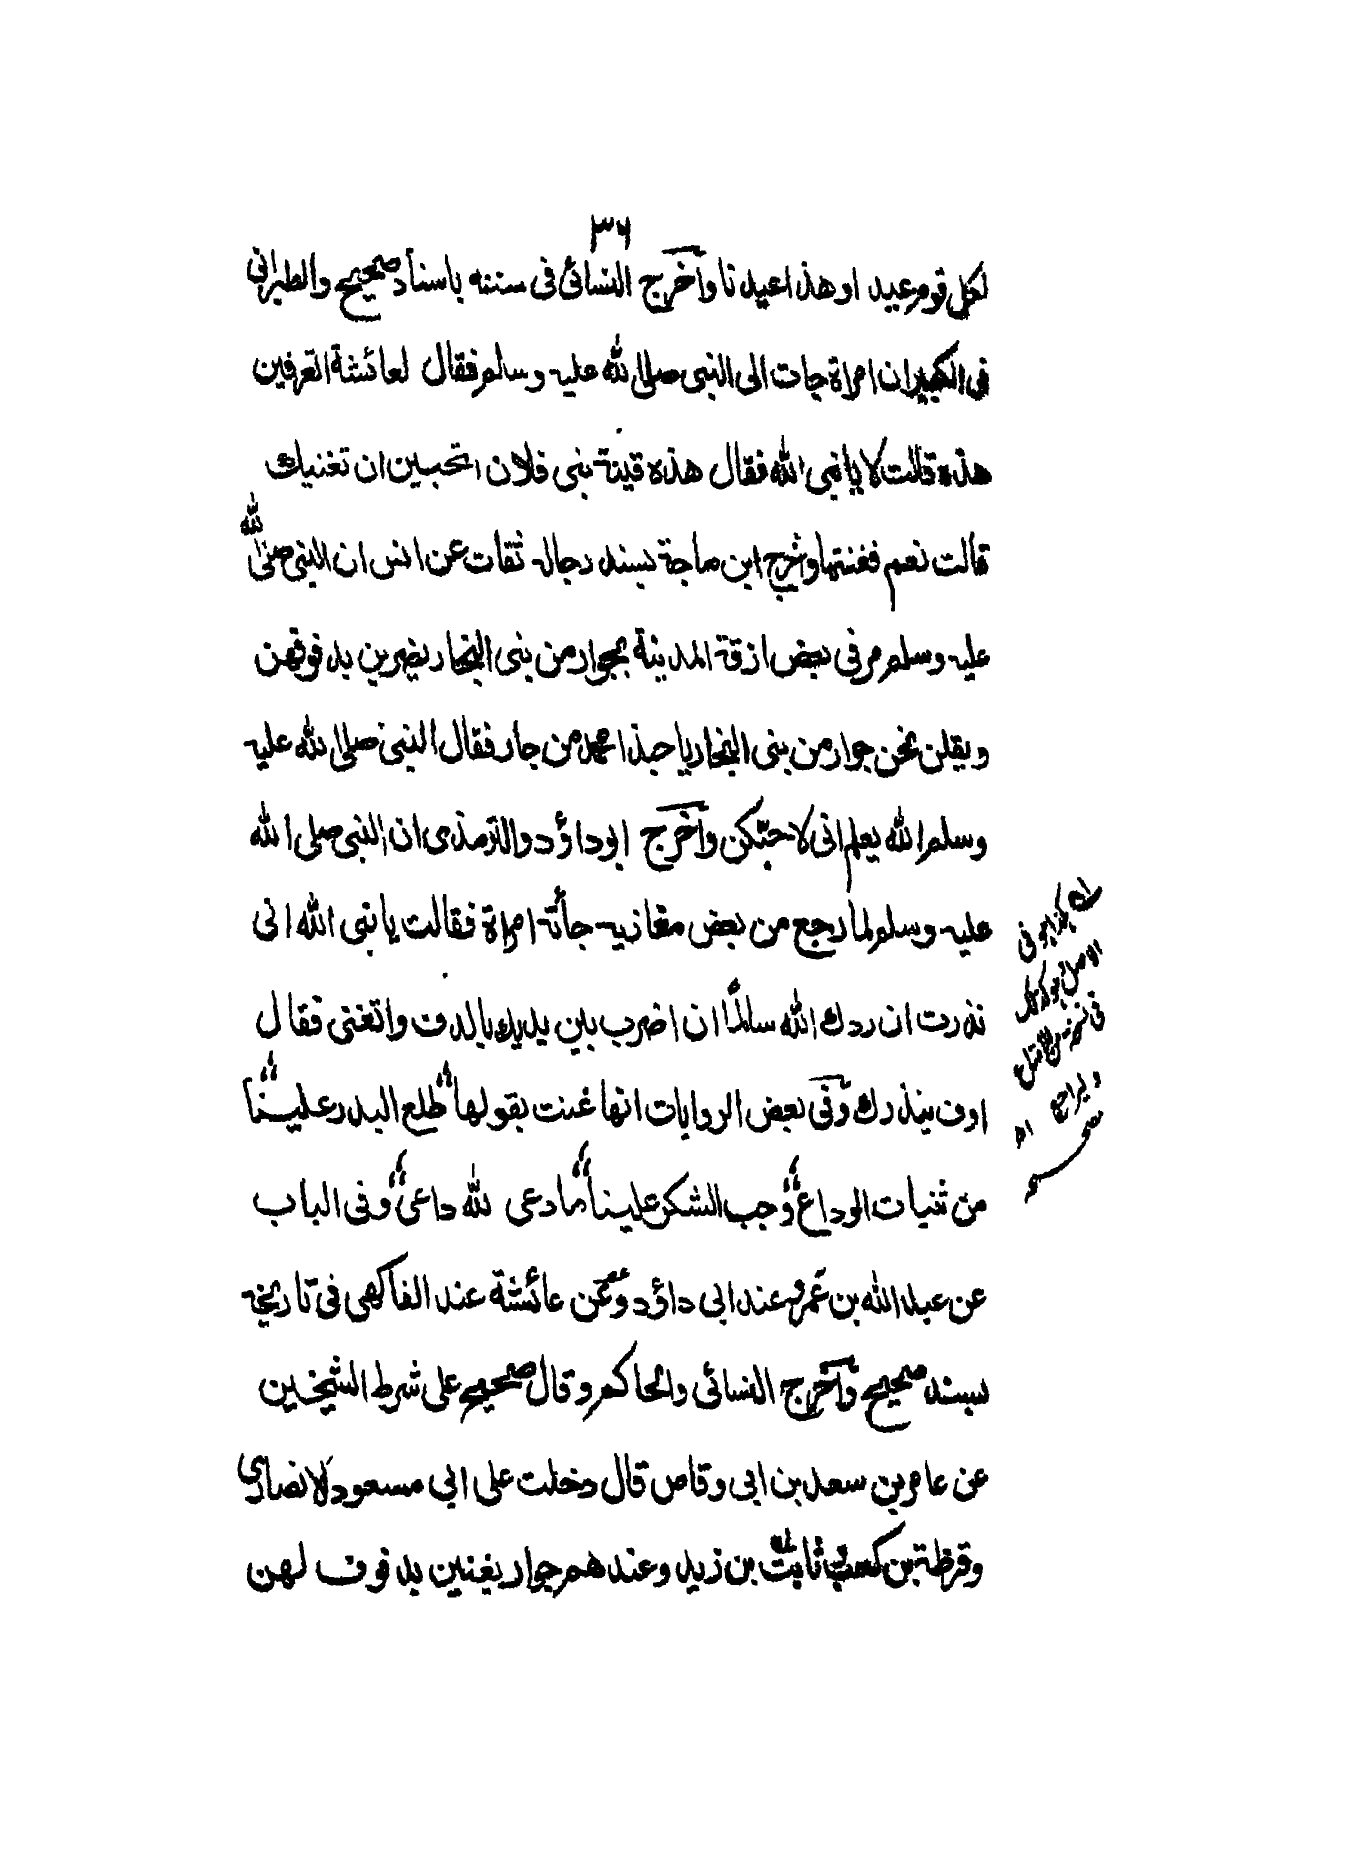 ٣٦
لكل قوم عيد او هذا عيد نا وآخرج النسائى فى سننه باسناد صحيح والطبرانى
فى الكبير ان امراة جات الى النبى صلى الله عليه وسلم فقال لعائشة اتعرفين
هذه قالت لا يا نبى الله فقال هذه قينة بنى فلان اتحبين ان تغنيك
قالت نعم فغنتها واخرج ابن ماجة بسند رجاله ثقات عن انس ان النبى صلى الله
عليه وسلم مر فى بعض ازقة المدينة بجوار من بنى النجار يضربن بد فوفهن
ويقلن نحن جوار من بنى النجار يا حبذا محمد من جار فقال النبى صلى الله عليه
وسلم الله يعلم انى لاحبّكن وآخرج ابوداؤد والترمذى ان النبى صلى الله
عليه وسلم لما رجع من بعض مغازيه جأته امراة فقالت يا نبى الله انى
نذرت ان ردك الله سالمًا ان اضرب بين يديك بالدف واتغنى فقال
اوف بنذرك وَفى بعض الروايات انها غنت بقولها" طلع البدر علينا"
من ثنيات الوداع" وجب الشكر علينا" مادعى لله داعى" وفى الباب
عن عبد الله بن عَمرو عند ابى داؤد وَعن عائشة عند الفاكهى فى تاريخه
بسند صحيح وَآخرج النسائى والحاكم وقال صحيح على شرط الشيخين
عن عامر بن سعد بن ابى وقاص قال دخلت على ابى مسعود الانصارى
وقرظة بن كعب ثابت بن زيد وعندهم جوار يغنين بد فوف لهن
كذا هو فى
الاصل
فى نسخة من
و ليراجع اھ